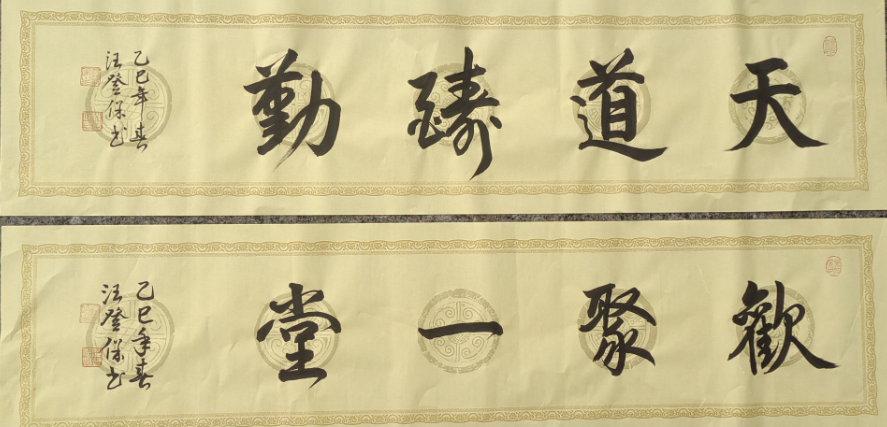 天道醻勤
乙巳年春
汪登保书
歡聚一堂
乙巳年春
汪登保书